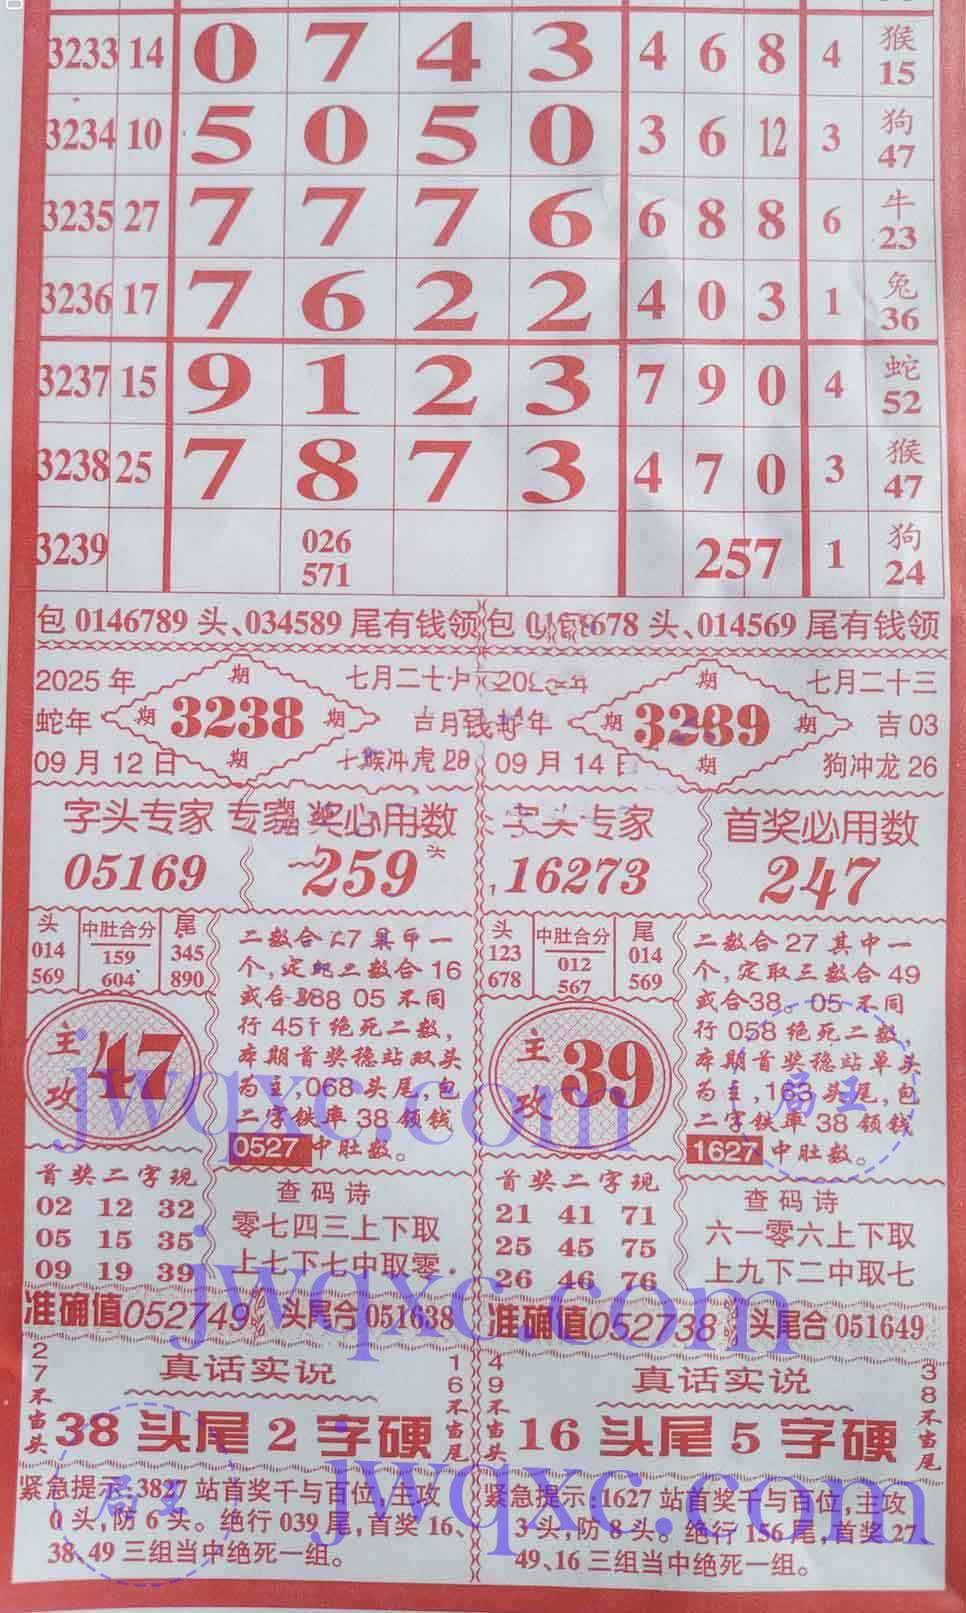 3233 14 0 7 4 3 4 6 8 4 猴 15
3234 10 5 0 5 0 3 6 12 3 狗 47
3235 27 7 7 7 6 6 8 8 6 牛 23
3236 17 7 6 2 2 4 0 3 1 兔 36
3237 15 9 1 2 3 7 9 0 4 蛇 52
3238 25 7 8 7 3 4 7 0 3 猴 47
3239 026 571 257 1 狗 24
包 0146789 头、034589 尾有钱领
包 678 头、014569 尾有钱领
2025 年 期 七月二十
蛇年 期 3238 期 吉月钱
09 月 12 日 期 猴冲虎 28
年 期 七月二十三
蛇年 期 3239 期 吉 03
09 月 14 日 期 狗冲龙 26
字头专家 专家 奖必用数
05169 259 头
字头专家 首奖必用数
16273 247
头 中肚合分 尾
014 159 345
569 604 890
主攻 47
二数合 27 其中一
个,定 三数合 16
或合 388 05 不同
行 451 绝死二数,
本期首奖稳站双头
为主,068 头尾,包
二字铁率 38 领钱
0527 中肚数。
头 中肚合分 尾
123 012 014
678 567 569
主攻 39
二数合 27 其中一
个,定取三数合 49
或合38。05 不同
行 058 绝死二数,
本期首奖稳站单头
为主,163 头尾,包
二字铁率 38 领钱
1627 中肚数。
首奖二字现
02 12 32
05 15 35
09 19 39
查码诗
零七四三上下取
上七下七中取零.
首奖二字现
21 41 71
25 45 75
26 46 76
查码诗
六一零六上下取
上九下二中取七
准确值052749 头尾合 051638
准确值052738 头尾合 051649
27不当头
真话实说
38 头尾 2 字硬
16不当尾
49不当头
真话实说
16 头尾 5 字硬
38不当尾
紧急提示:3827 站首奖千与百位,主攻
0 头,防 6 头。绝行 039 尾,首奖 16、
38、49 三组当中绝死一组。
紧急提示:1627 站首奖千与百位,主攻
3 头,防 8 头。绝行 156 尾,首奖 27
49、16 三组当中绝死一组。
jwqxc.com
jwqxc.com
jwqxc.com
局王
局王